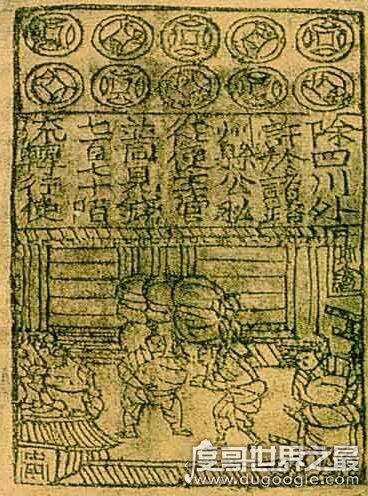 除四川外
許於諸路
州縣公私
從便主管
並同見錢
七百七十陌
流轉行使
度哥世界之最
www.dugoogle.com